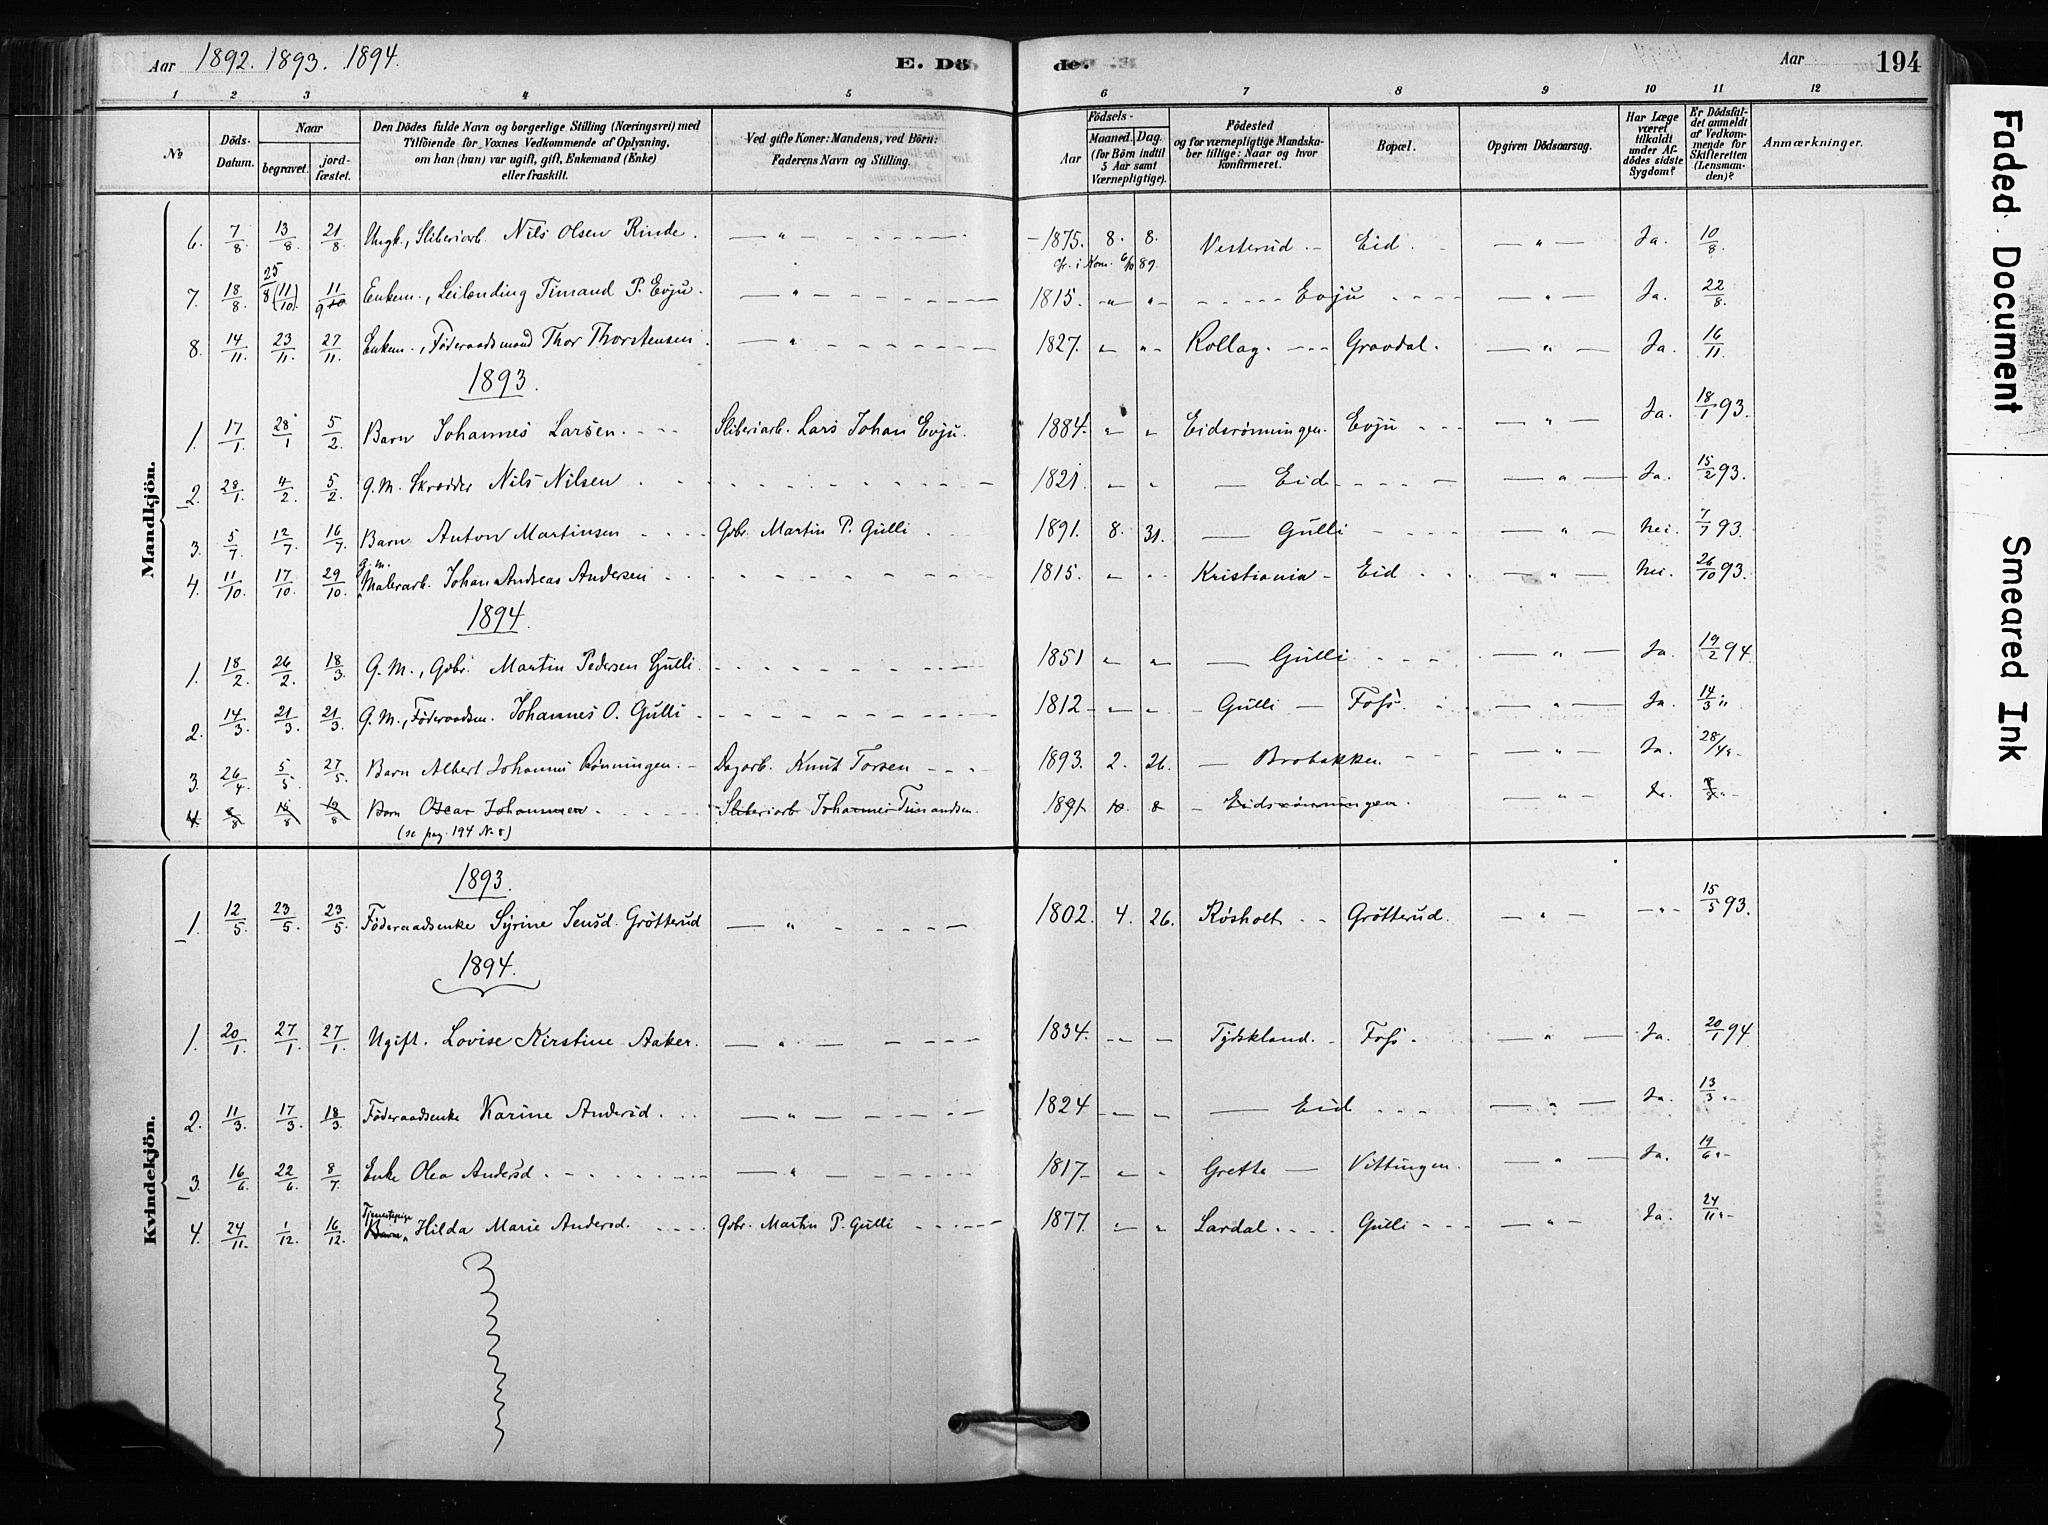 Aar 1892. 1893. 1894. E. Döde. Aar 194
1 2 3 4 5 6 7 8 9 10 11 12
No
Döds-Datum.
Naar
begravet.
jord-fæstet.
Den Dödes fulde Navn og borgerlige Stilling (Næringsvei) med
Tilföiende for Voxnes Vedkommende af Oplysning,
om han (hun) var ugift, gift, Enkemand (Enke)
eller fraskilt.
Ved gifte Koner: Mandens, ved Börn:
Faderens Navn og Stilling.
Födsels-
Aar
Maaned. Dag.
(for Börn indtil
5 Aar samt
Værnepligtige).
Födested
og for værnepligtige Mandska-
ber tillige: Naar og hvor
konfirmeret.
Bopæl.
Opgiven Dödsaarsag.
Har Læge
været
tilkaldt
under Af-
dödes sidste
Sygdom?
Er Dödsfal-
det anmeldt
af Vedkom-
mende for
Skifteretten
(Lensman-
den)?
Anmærkninger.
Mandkjön.
6. 7/8 13/8 21/8 Ungk., Sliberiarb. Nils Olsen Rinde. — " — 1875. 8. 8. Vesterud. Eid — " — Ja. 10/8
7. 18/8 25/8 (11/10) Enkem., Leilænding Timand P. Evju. — " — 1815. " " Evju — " — Ja. 22/8.
8. 14/11 23/11 27/11 Enkem., Föderaadsmand Thor Thorstensen. — " — 1827. " " Rollag. Gravdal. — " — Ja. 16/11
1893.
1. 17/1 28/1 5/2 Barn Johannes Larsen. Sliberiarb. Lars Johan Evju. 1884. " " Eidsrønningen. Evju — " — Ja. 18/1 93.
2. 28/1 4/2 5/2 G.M. Skrædder Nils Nilsen 1821. " " — Eid — " — Ja. 15/2 93.
3. 5/7 12/7 16/7 Barn Anton Martinsen Gbr. Martin P. Gulli 1891. 8. 31. — Gulli — " — Nei. 7/7 93.
4. 11/10 17/10 29/10 G.M. Malerarb. Johan Andreas Andersen 1815. " " Kristiania Eid — " — Nei. 26/10 93.
1894.
1. 18/2 26/2 18/3 G.M., Gbr. Martin Pedersen Gulli. 1851 " " — Gulli — " — Ja. 19/2 94.
2. 14/3 21/3 21/3 G.M., Föderaadsm. Johannes O. Gulli 1812 " " Gulli — Fofs. — " — Ja. 14/3 "
3. 26/4 5/5 27/5 Barn Albert Johannes Rønningen. Dagarb. Knut Torsen 1893. 2. 26. — Brobakken. — " — Ja. 28/4 "
4. 8/8 18/8 19/8 Barn Oscar Johannesen. Sliberiarb. Johannes Timandsen. 1891 10. 8 Eidsrønningen. — " — Ja. 8/8 "
(se pag. 194 No 8)
Kvindekjön.
1893.
1. 12/5 23/5 23/5 Föderaadsenke Syrine Jensd. Grötterud — " — 1802. 4. 26. Røsholt Grötterud. — " — — " — 15/5 93.
1894.
1. 20/1 27/1 27/1 Ugift. Lovise Kirstine Aaker. — " — 1834. " " Tydskland. Fofs. — " — Ja. 20/1 94
2. 11/3 17/3 18/3 Föderaadsenke Karine Andersd. — " — 1824 " " — Eid — " — Ja. 13/3 "
3. 16/6 22/6 8/7 Enke Olea Andersd. — " — 1817 " " Grette — Vittingen. — " — Ja. 19/6 "
4. 24/11 1/12 16/12 Tjenestepige Barn, Hilda Marie Andersd. Gbr. Martin P. Gulli 1877 " " Lardal. Gulli — " — Ja. 24/11 "
Faded Document
Smeared Ink